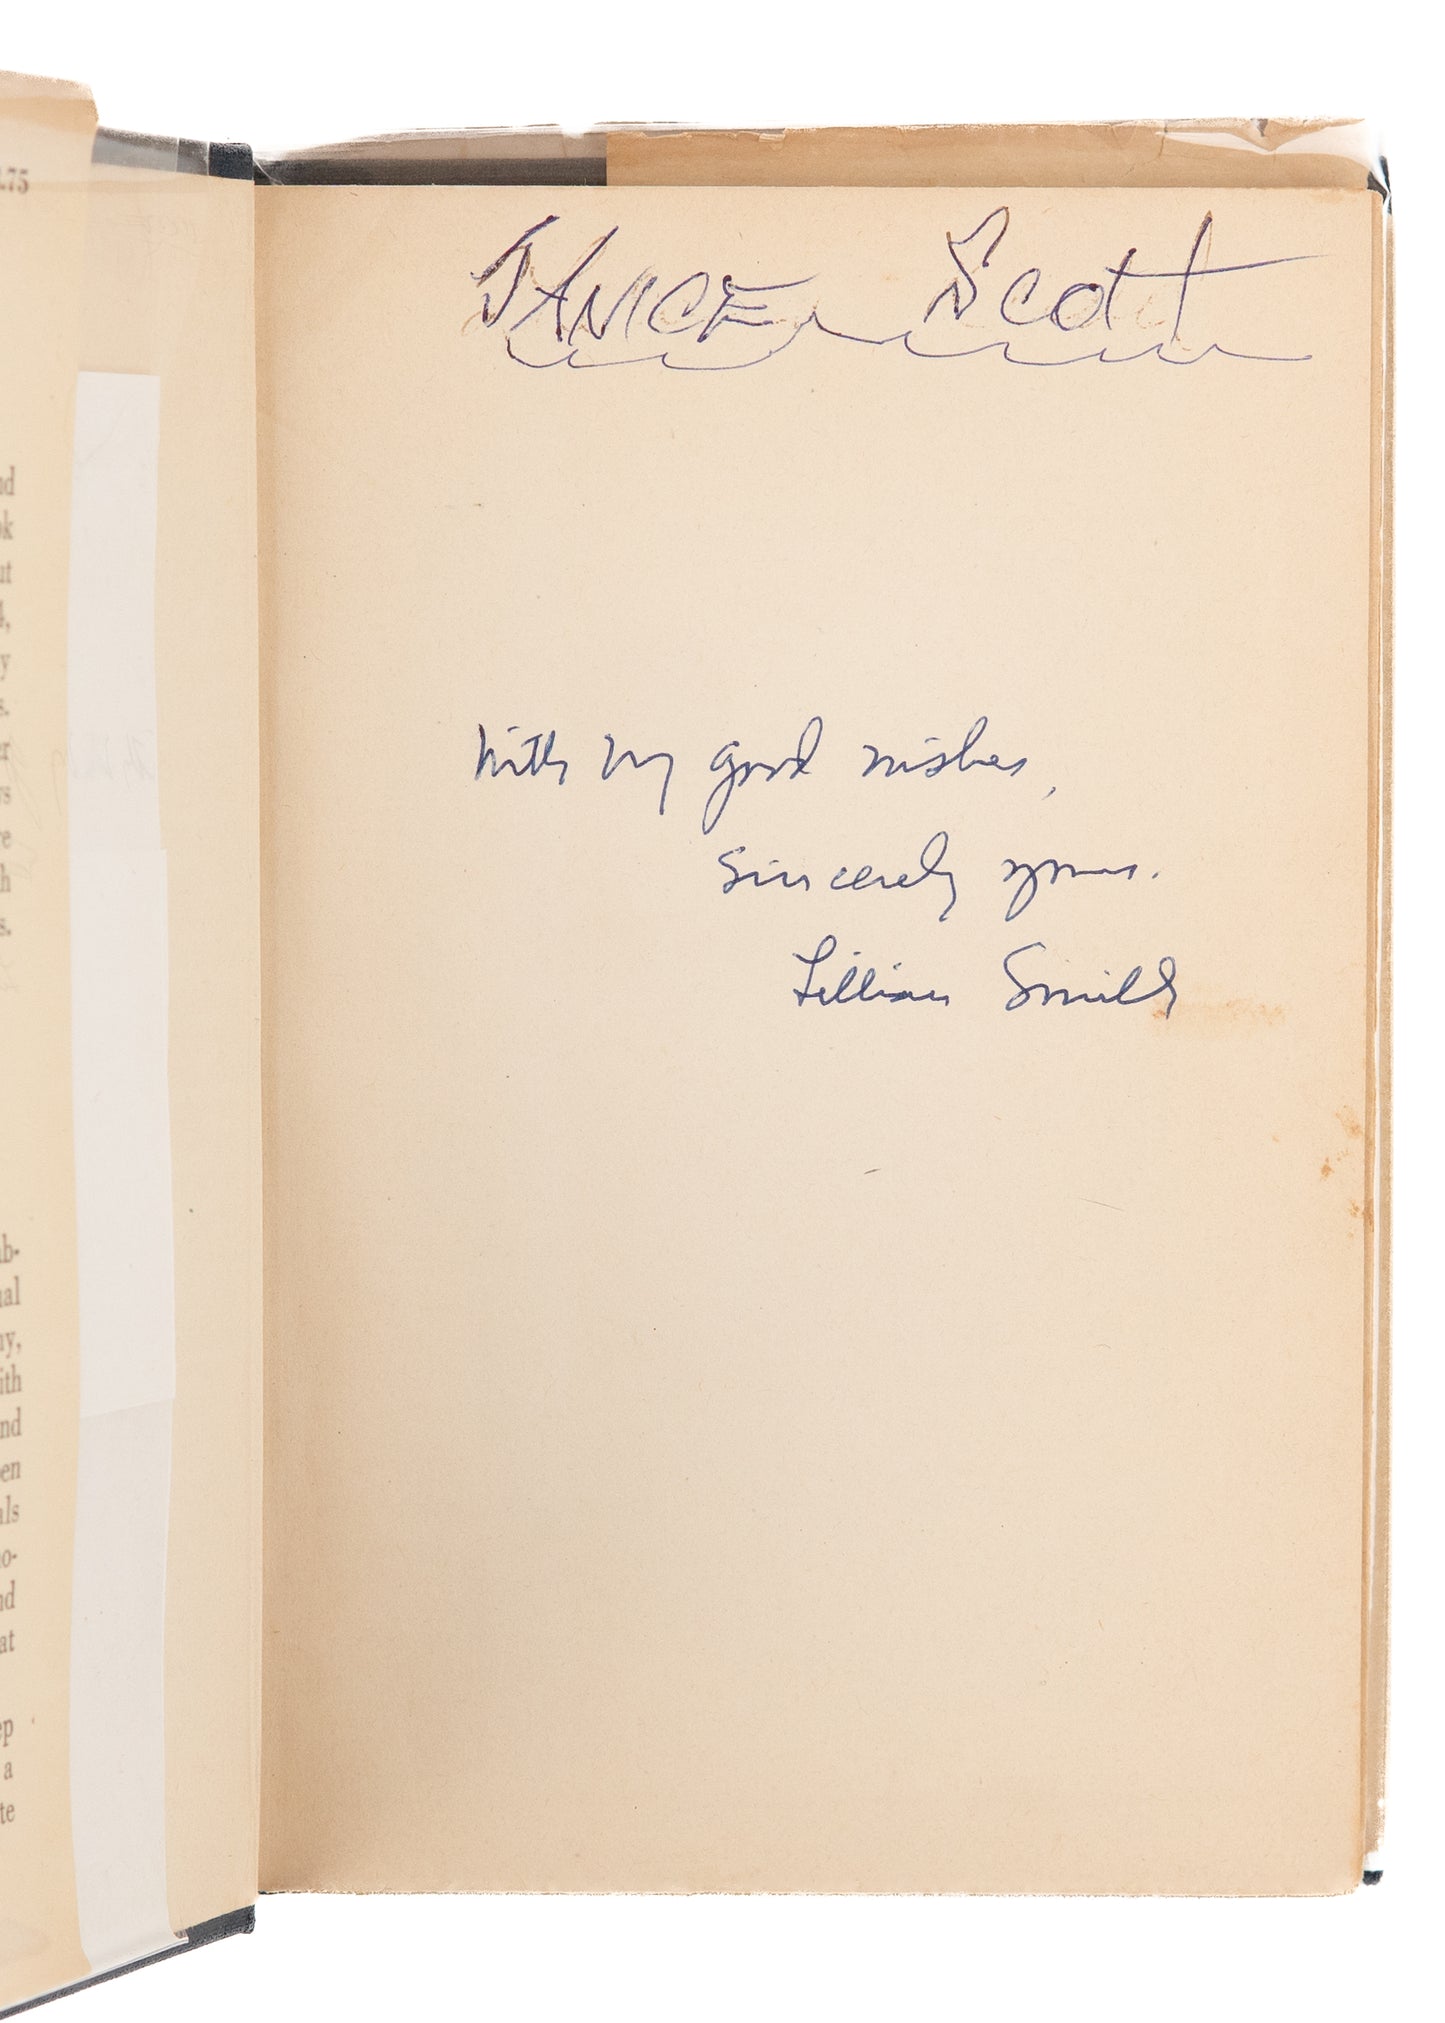 .75
nd
ok
ut
4,
y
s.
er
ys
re
h
s.
ab-
nal
ny,
ith
nd
een
als
no-
nd
at
ep
a
te
JANICE Scott
With my good wishes,
Sincerely yours.
Lillian Smith